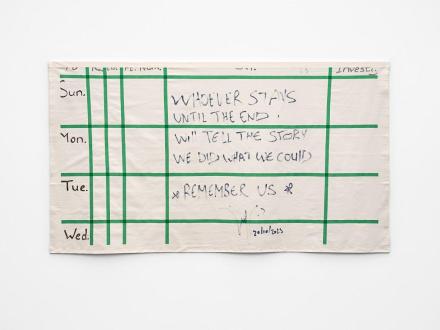 Investi.
Sun.
WHOEVER STAYS
UNTIL THE END.
Mon.
WILL TELL THE STORY
WE DID WHAT WE COULD
Tue.
*REMEMBER US *
20/10/2023
Wed.